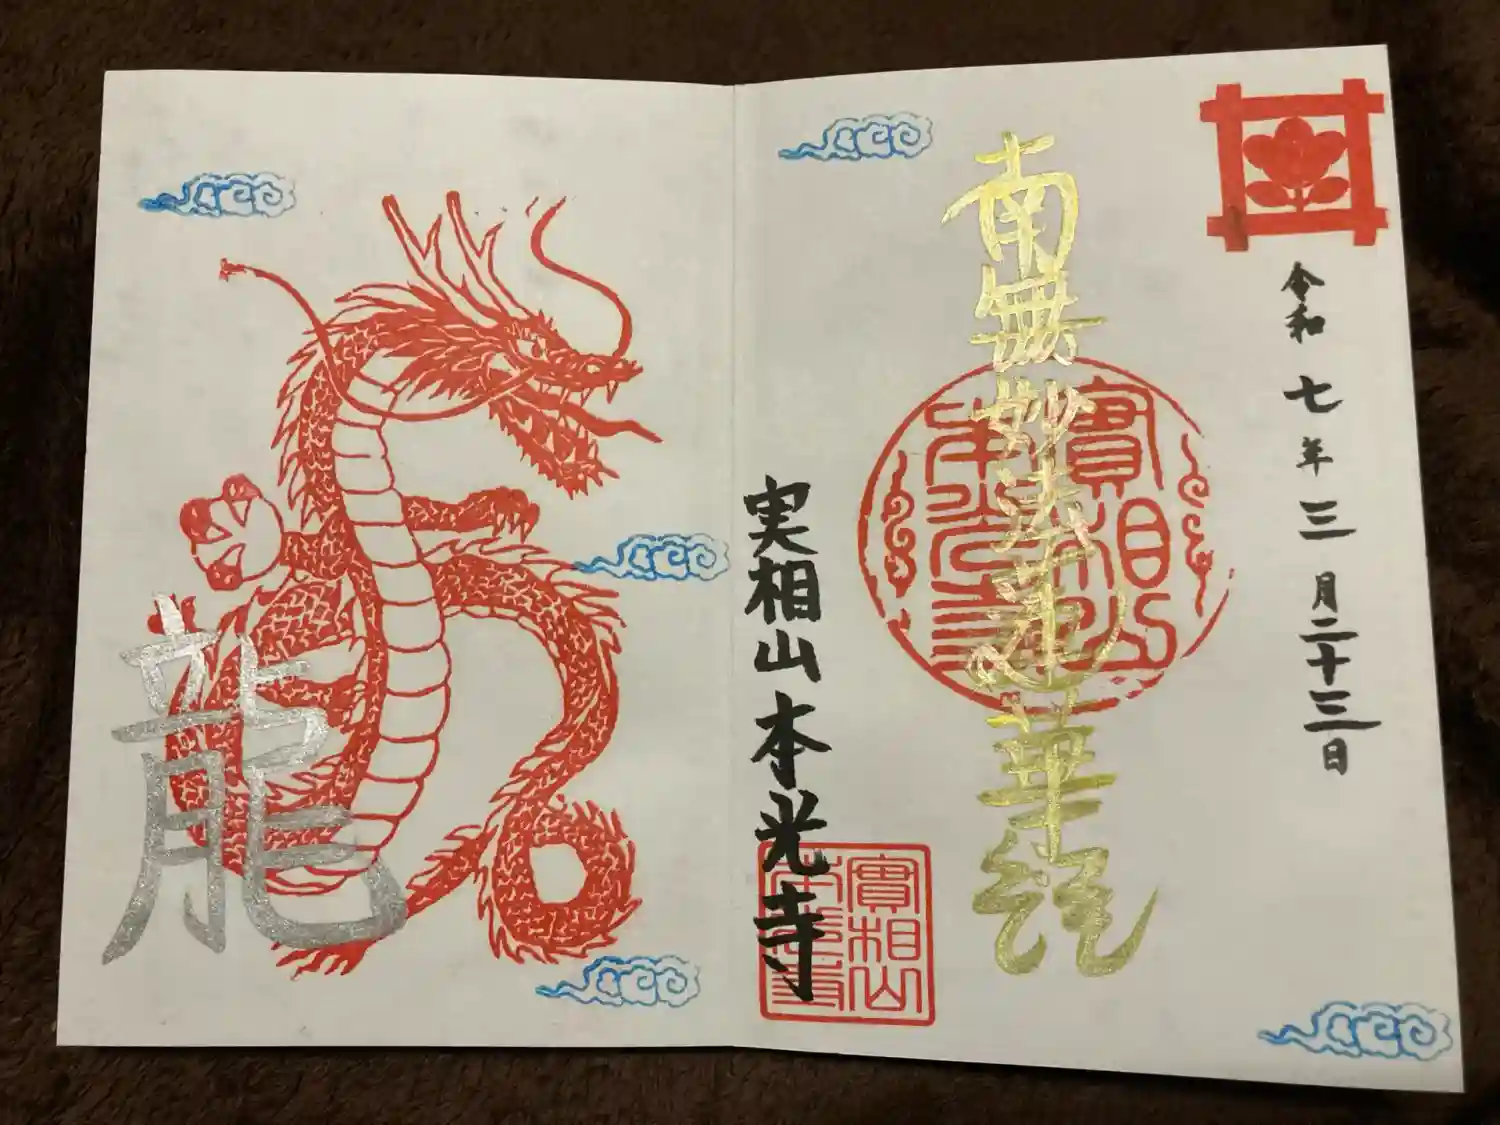 令和七年三月二十三日
南無妙法蓮華経
實相山
本光寺
実相山本光寺
實相山
本光寺
龍